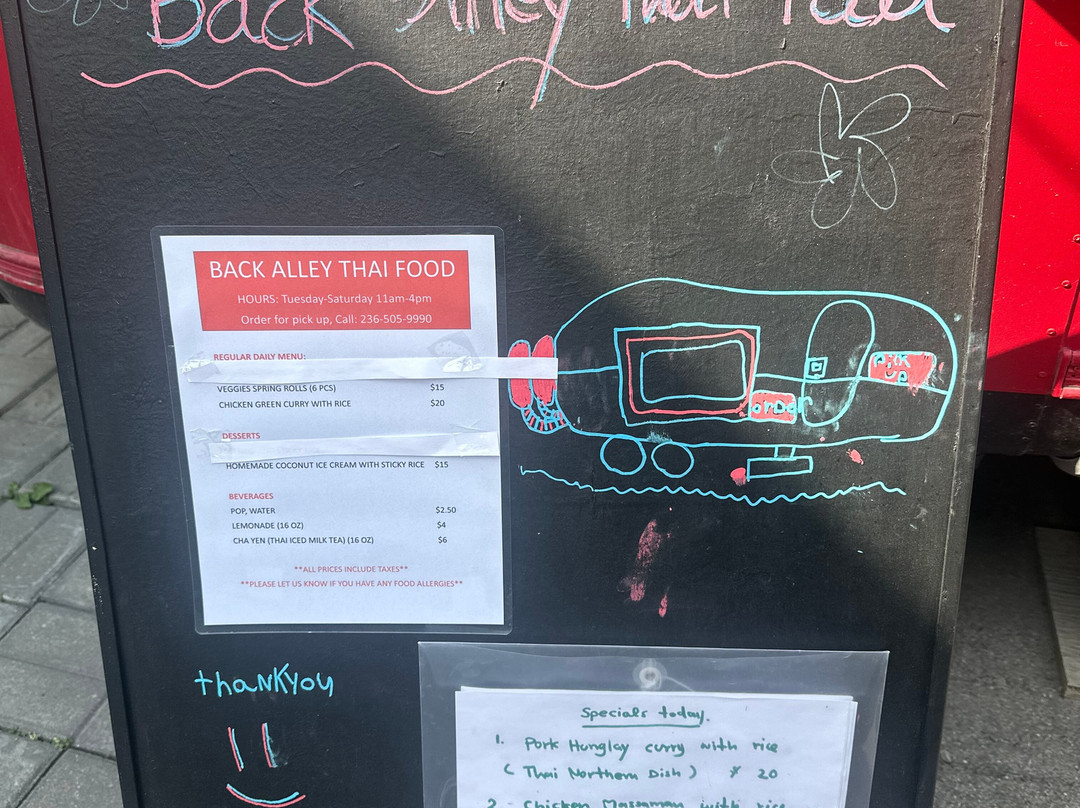 Back Alley Thai Food
BACK ALLEY THAI FOOD
HOURS: Tuesday-Saturday 11am-4pm
Order for pick up, Call: 236-505-9990
REGULAR DAILY MENU:
VEGGIES SPRING ROLLS (6 PCS) $15
CHICKEN GREEN CURRY WITH RICE $20
DESSERTS
HOMEMADE COCONUT ICE CREAM WITH STICKY RICE $15
BEVERAGES
POP, WATER $2.50
LEMONADE (16 OZ) $4
CHA YEN (THAI ICED MILK TEA) (16 OZ) $6
**ALL PRICES INCLUDE TAXES**
**PLEASE LET US KNOW IF YOU HAVE ANY FOOD ALLERGIES**
Pick
up
order
thankyou
Specials today.
1. Pork Hunglay curry with rice
(Thai Northern Dish) $ 20
2. Chicken Massaman with rice